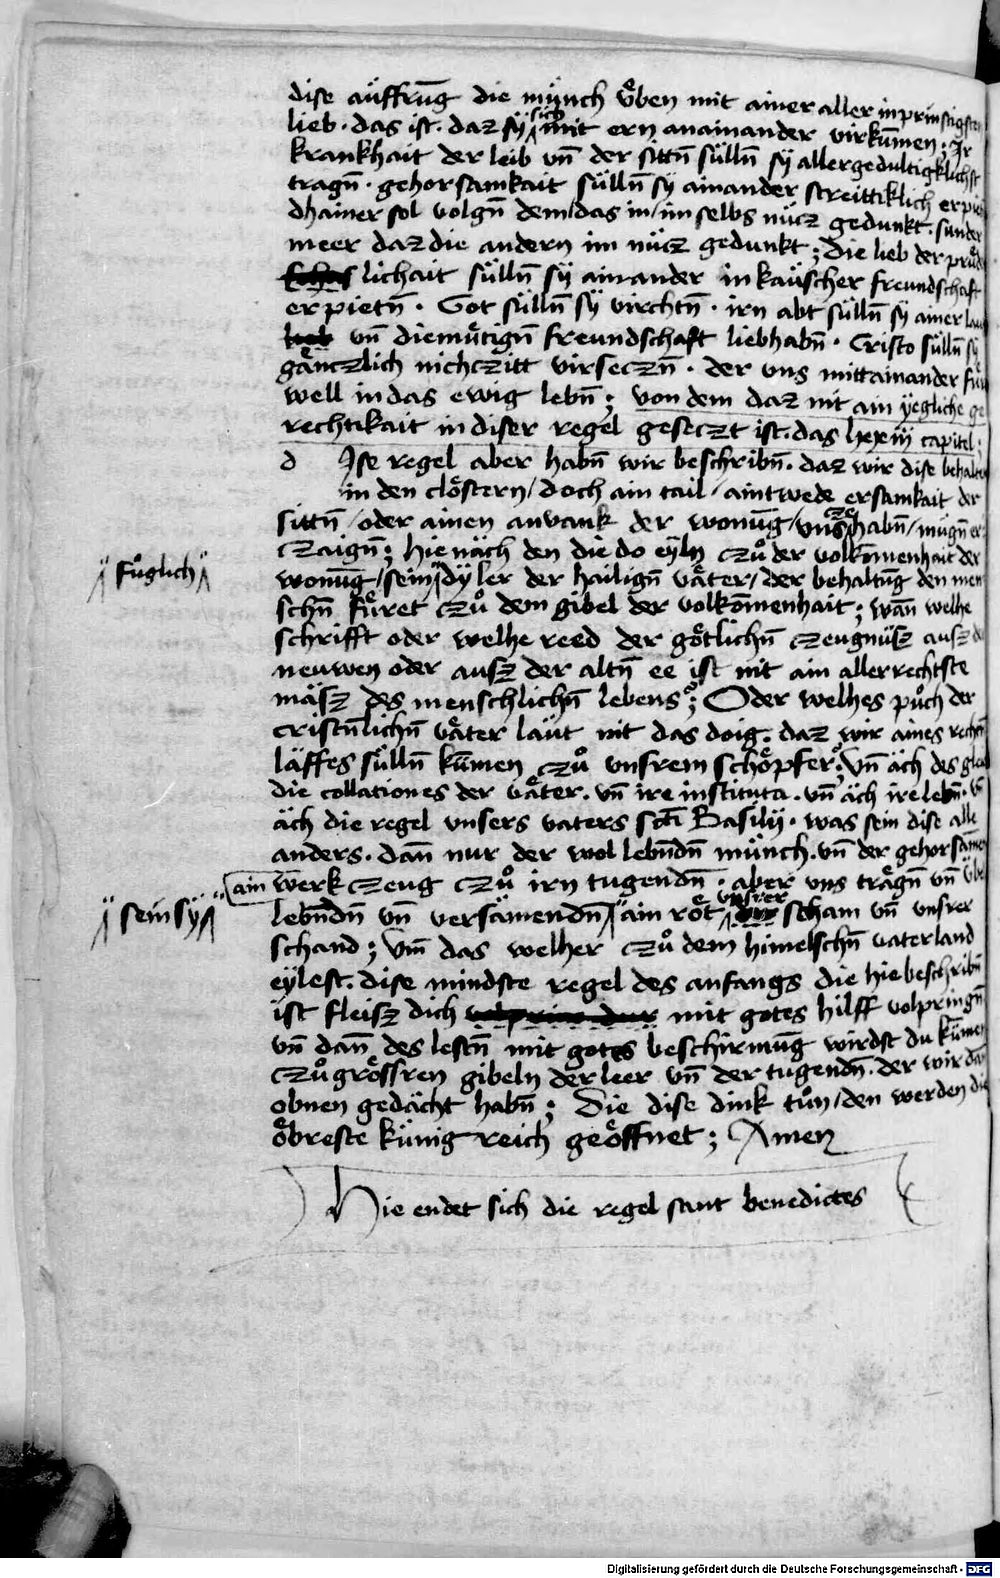 dise aüffrūg die münch vͤben mit ainer aller inprinstigsten
lieb · das ist · daz sÿ sich mit ern anainander virkūmen ; Jr
krankhait der leib vn̄ der sittn̄ süllñ sÿ allergedultigklichst
tragn̄ · gehorsamkait süllñ sÿ ainander streittiklich
dhainer sol volgn̄ dem / das in / im selbs nücz gedunkt · sunder
meer daz die andern im nücz gedunkt ; die lieb der
lichait süllñ sÿ ainander in kaüscher freundschaft
erpietn̄ · Got süllñ sÿ virchtn̄ · irn abt süllñ sÿ
vn̄ diemuͤtign̄ freundschaft liebhabn̄ · Cristo süllñ sÿ
gaͤnczlich nichczitt virseczn̄ · der vns mittainander
well in das ewig lebn̄ ; von dem daz nit ain ÿegliche ge
rechtikait in diser regel geseczt ist · das lxxiij capitel ·
d Jse regel aber habn̄ wir beschribn̄ · daz wir dise behalten
in den cloͤstern / doch ain tail / aintwede ersamkait der
sittn̄ / oder ainen anvank der wonūg / vns habn̄ / mügn̄ er
czaign̄ ; hie näch den die do eÿln czuͦ der volkōmenhait der
"fuͤglich"
wonūg / sein dÿ ler der hailign̄ vaͤter / der behaltūg den men
schn̄ fuͤret czuͦ dem gibel der volkōmenhait ; wān welhe
schrifft oder welhe reed der goͤtlichn̄ czeugnüsz ausz
neuwen oder ausz der altn̄ ee ist nit ain allerrechtste
mäsz des menschlichn̄ lebens ; Oder welhes puͦch der
cristnlichn̄ vaͤter läut nit das doig · daz wir aines
läffes süllñ kūmen czuͦ vnsrem schoͤpfer ; vn̄ äch des
die collationes der vaͤter · vn̄ ire instituta · vn̄ äch ire lebn̄ · vn̄
äch die regel vnsers vaters scī Basilij · was sein dise alle
anders · dan̄ nur der wol lebndn̄ münch · vn̄ der gehorsamen
ain werk czeug czuͦ irn tugendn̄ · aber vns traͤgn̄ vn̄
"sein sÿ"
lebndn̄ vn̄ versämendn̄ ain roͤt vnsrer scham vn̄ vnsrer
schand ; vm̄ das welher czuͦ dem himelschn̄ vaterland
eÿlest · dise mindste regel des anfangs die hie beschribn̄
ist fleisz dich mit gotes hilff volpringn̄
vn̄ dan̄ des lestn̄ mit gotes beschirmūg wirdst du kūmen
czuͦ groͤssren gibeln der leer vn̄ der tugendn̄ · der wir
obnen gedächt habn̄ ; Die dise dink tuͦn / den werden die
oͤbreste künigreich geoͤffnet ; Amen
Hie endet sich die regel sant benedictes
Digitalisierung gefördert durch die Deutsche Forschungsgemeinschaft · DFG